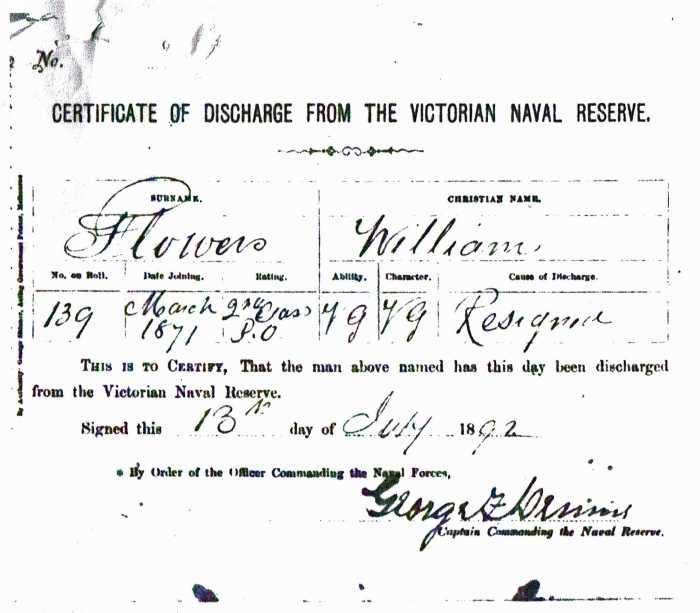 No.
CERTIFICATE OF DISCHARGE FROM THE VICTORIAN NAVAL RESERVE.
SURNAME. CHRISTIAN NAME.
Flowers William
No. on Roll. Date Joining. Rating. Ability. Character. Cause of Discharge.
139 March 1871 2nd Class P.O VG VG Resigned
THIS IS TO CERTIFY, That the man above named has this day been discharged
from the Victorian Naval Reserve.
Signed this 13th day of July 1892
By Order of the Officer Commanding the Naval Forces,
George F Dennis
Captain Commanding the Naval Reserve.
By Authority: George Skinner, Acting Government Printer, Melbourne